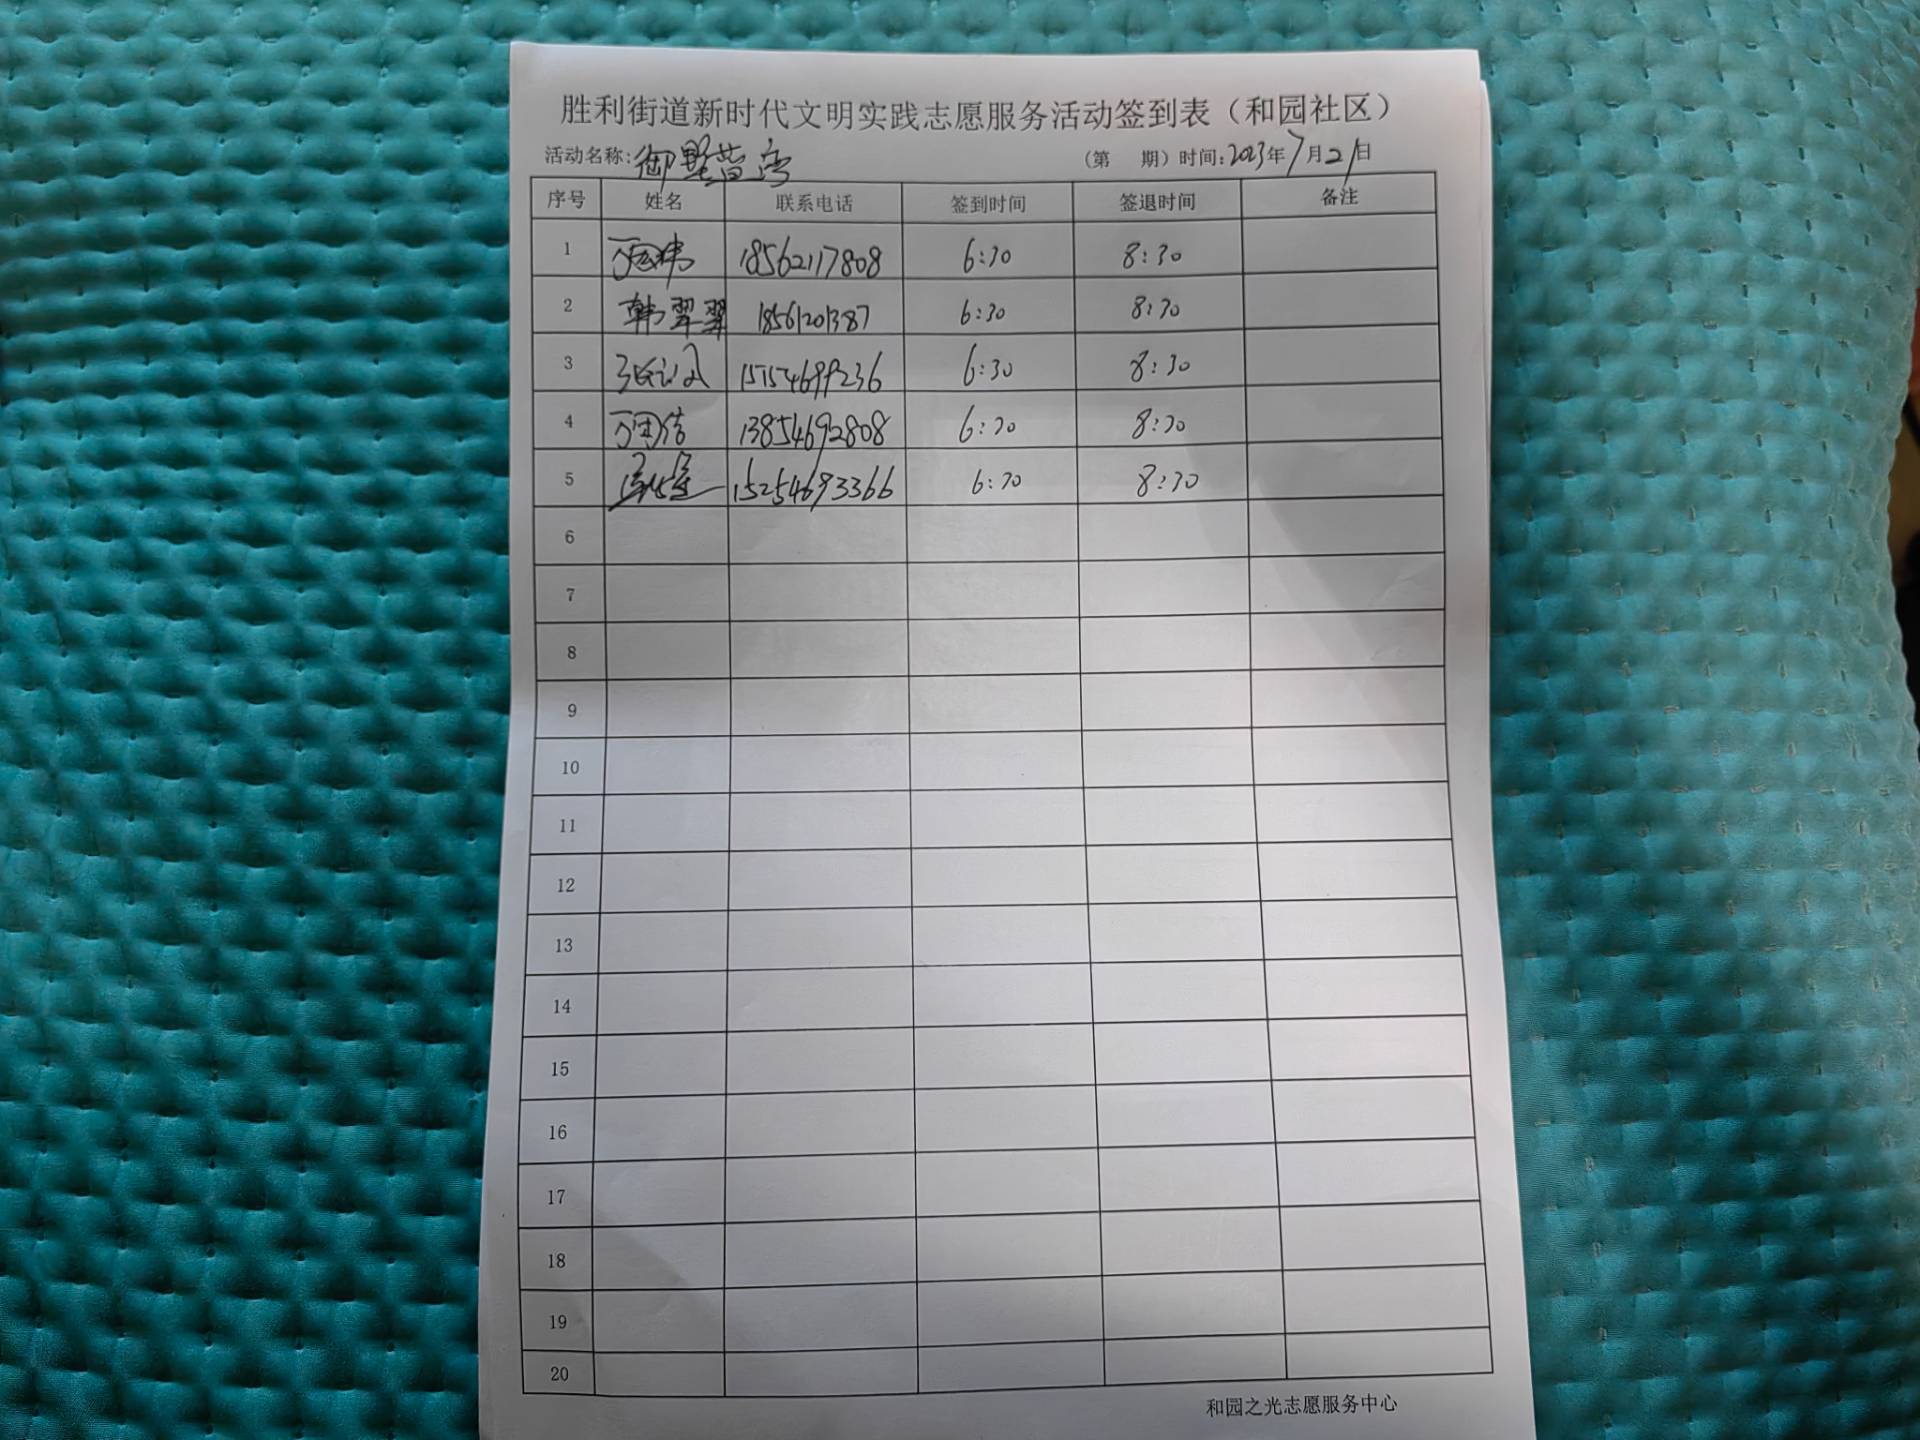 胜利街道新时代文明实践志愿服务活动签到表（和园社区）
活动名称: （第 期）时间:2023年7月21日
序号 姓名 联系电话 签到时间 签退时间 备注
1 18562117808 6:30 8:30
2 韩翠翠 18561201387 6:30 8:30
3 15154699236 6:30 8:30
4 13854692808 6:30 8:30
5 15254693366 6:30 8:30
6
7
8
9
10
11
12
13
14
15
16
17
18
19
20
和园之光志愿服务中心